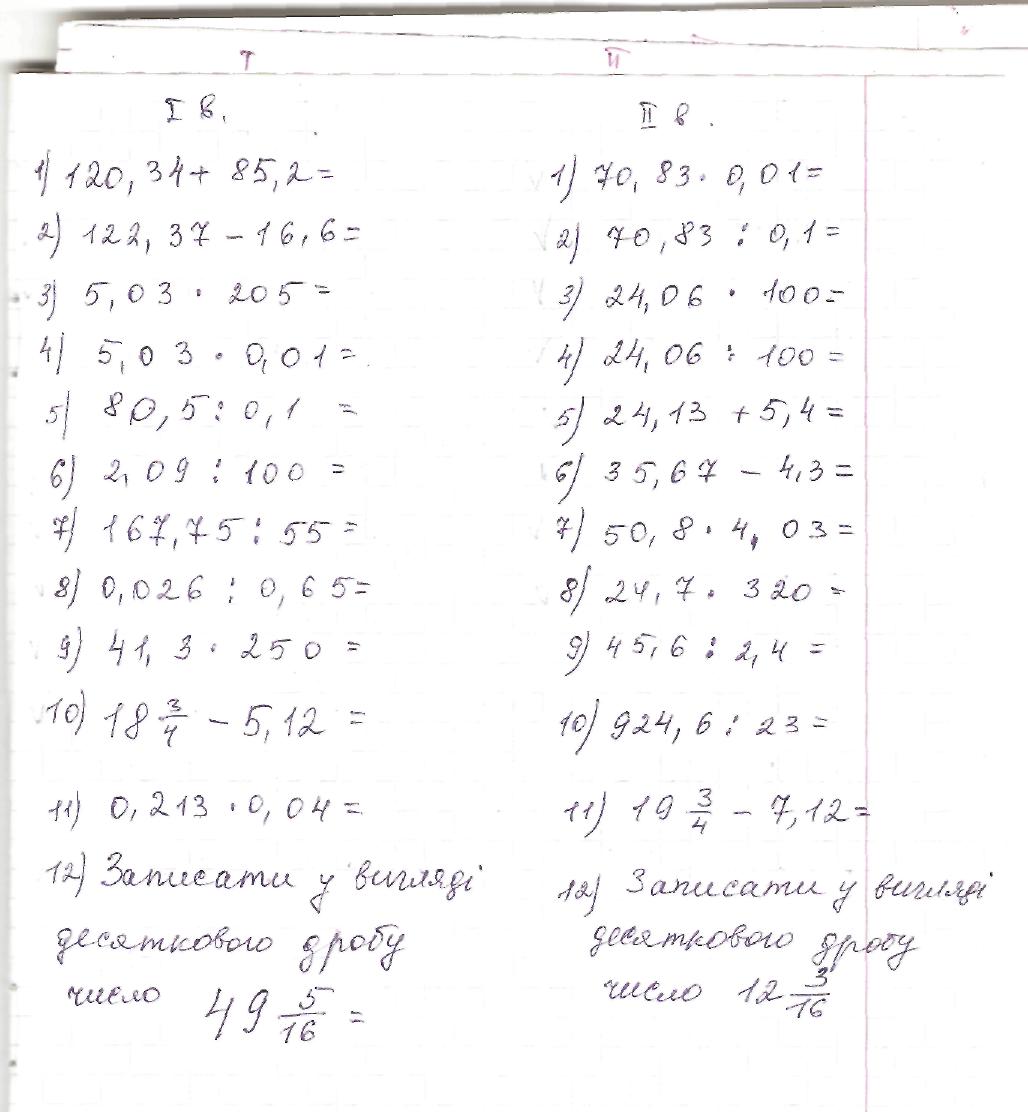 I II
I в.
1) 120,34 + 85,2 =
2) 122,37 - 16,6 =
3) 5,03 · 205 =
4) 5,03 · 0,01 =
5) 80,5 : 0,1 =
6) 2,09 : 100 =
7) 167,75 : 55 =
8) 0,026 : 0,65 =
9) 41,3 · 250 =
10) 18 3/4 - 5,12 =
11) 0,213 · 0,04 =
12) Записати у вигляді
десяткового дробу
число 49 5/16 =
II в.
1) 70,83 · 0,01 =
2) 70,83 : 0,1 =
3) 24,06 · 100 =
4) 24,06 : 100 =
5) 24,13 + 5,4 =
6) 35,67 - 4,3 =
7) 50,8 · 4,03 =
8) 24,7 · 320 =
9) 45,6 : 2,4 =
10) 924,6 : 23 =
11) 19 3/4 - 7,12 =
12) Записати у вигляді
десяткового дробу
число 12 3/16